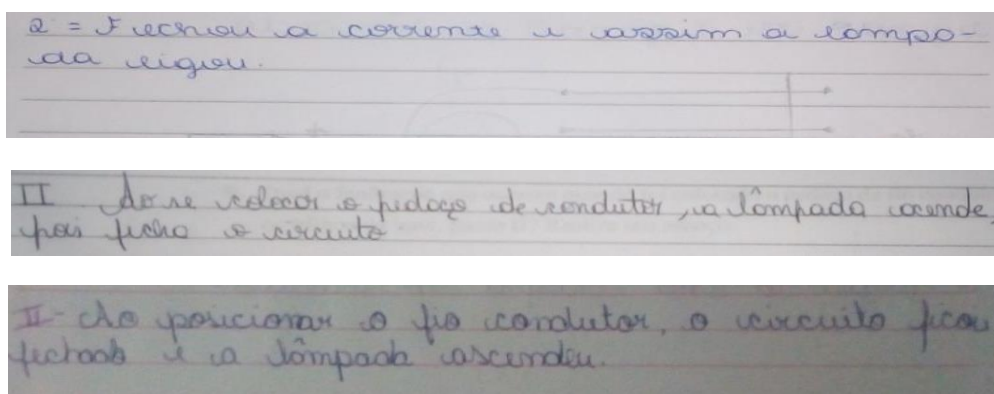 2 = Fechou a corrente e assim a lampa-
da ligou.
II Ao se colocar o pedaço de condutor, a lâmpada acende,
pois fecha o circuito
II- Ao posicionar o fio condutor, o circuito ficou
fechado e a lâmpada ascendeu.